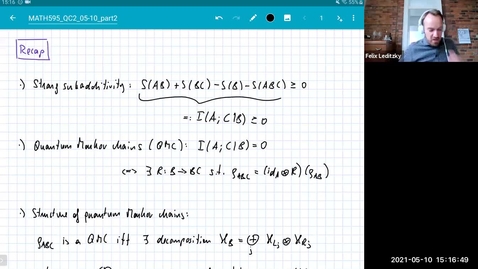 15:16
55%
MATH595_QC2_05-10_part2
1
Recap
·) Strong subadditivity: S(AB) + S(BC) - S(B) - S(ABC) ≥ 0
=: I(A; C|B) ≥ 0
·) Quantum Markov chains (QMC): I(A; C|B) = 0
⟺ ∃ R: B → BC s.t. ρ_ABC = (id_A ⊗ R)(ρ_AB)
·) Structure of quantum Markov chains:
ρ_ABC is a QMC iff ∃ decomposition ℋ_B = ⊕_j ℋ_Lj ⊗ ℋ_Rj
Felix Leditzky
2021-05-10 15:16:49